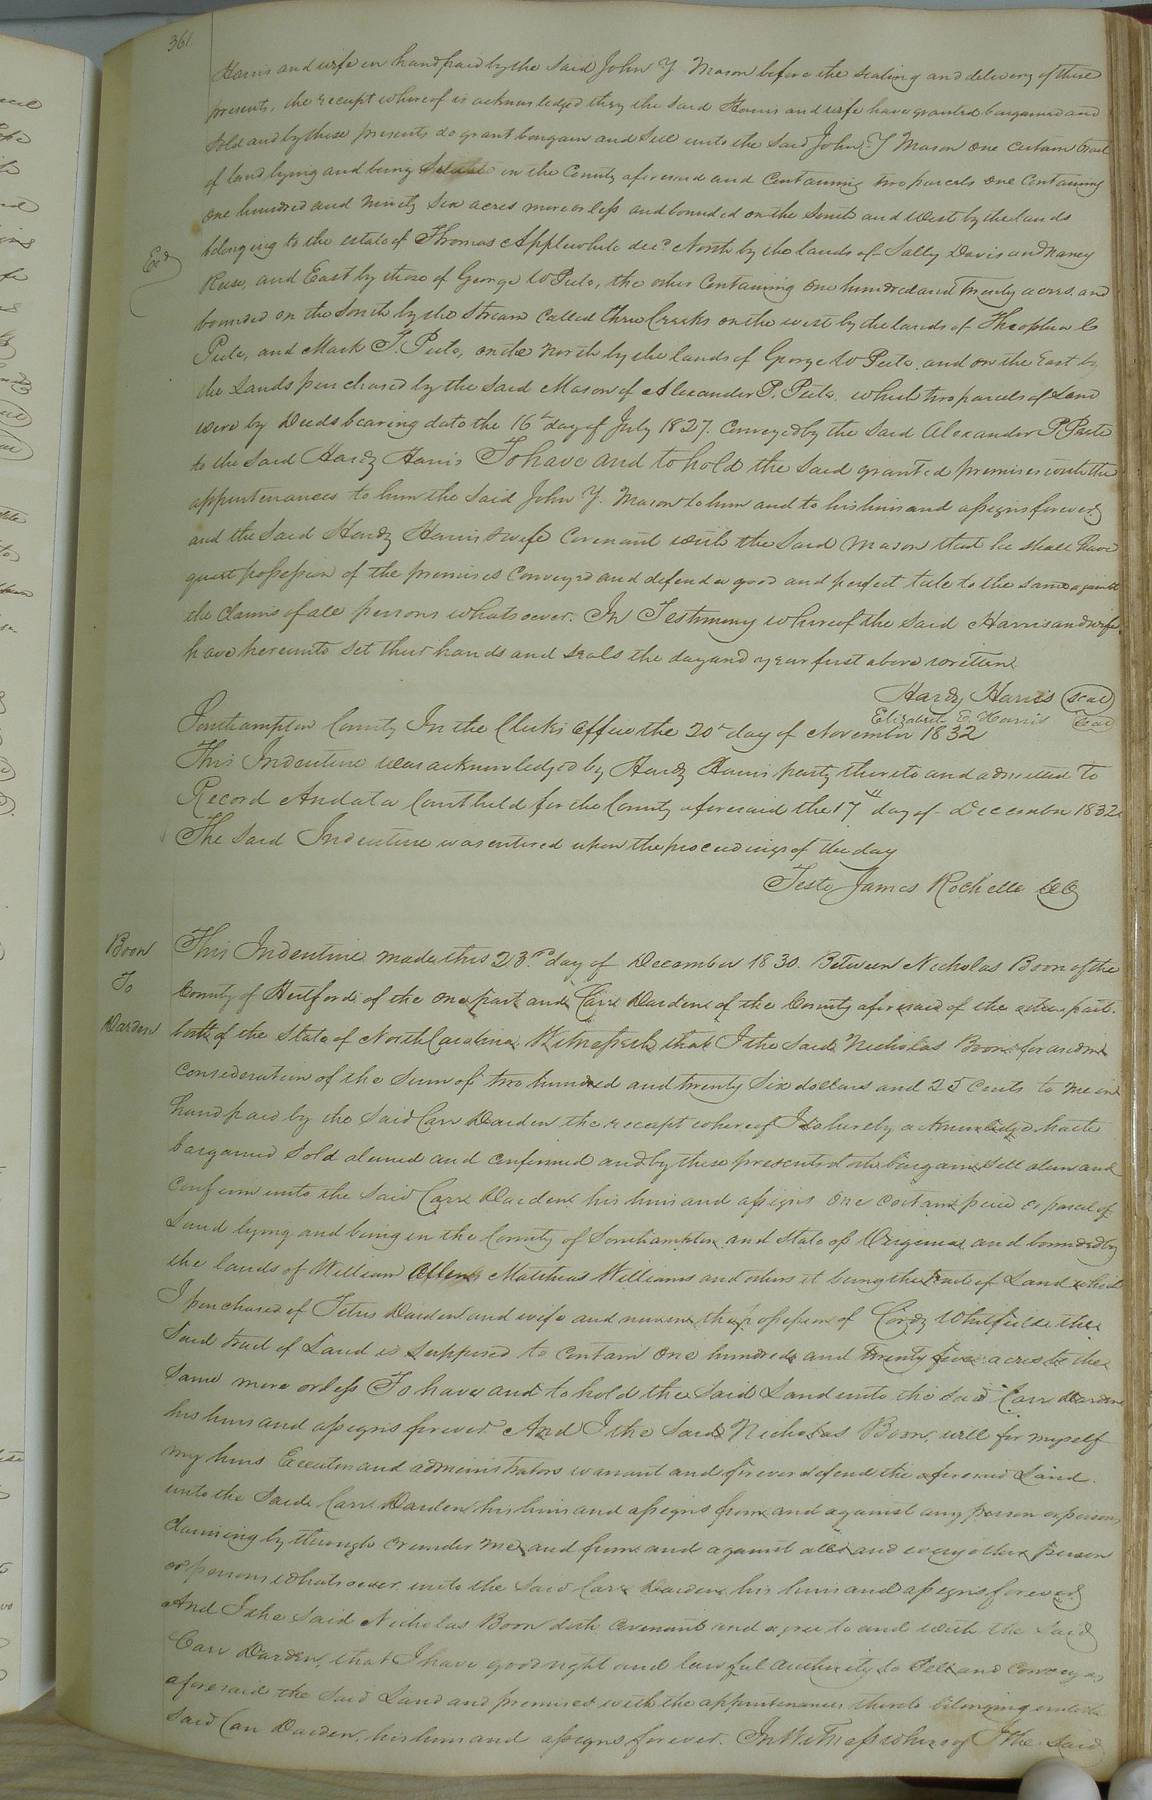 361.
Harris and wife in hand paid by the Said John Y. Mason before the sealing and delivery of these
presents, the receipt whereof is acknowledged they the said Harris and wife have granted bargained and
Sold and by these presents do grant bargain and Sell unto the Said John Y Mason one certain tract
of land lying and being Situate in the County aforesaid and Containing two parcels one Containing
one hundred and ninety Six acres more or less and bounded on the South and West by the lands
belonging to the estate of Thomas Applewhite decd. North by the lands of Sally Davis and Nancy
Exd
Reese, and East by those of George W Peete, the other Containing One hundred and Twenty acres and
bounded on the South by the Stream Called three Creeks on the west by the lands of Theophilus C
Peete, and Mark T. Peete, on the North by the lands of George W Peete and on the East by
the Lands purchased by the said Mason of Alexander P. Peete, which two parcels of Land
were by Deeds bearing date the 16th day of July 1827. Conveyed by the Said Alexander P. Peete
to the Said Hardy Harris To have and to hold the Said granted premises with the
appurtenances to him the Said John Y. Mason to him and to his heirs and assigns forever
and the Said Hardy Harris & wife Covenant with the Said Mason that he Shall have
quiet possession of the premises Conveyed and defend a good and perfect title to the same against
the Claims of all persons whatsoever. In Testimony whereof the said Harris and wife
have hereunto Set their hands and seals the day and year first above written
Hardy Harris (seal)
Elizabeth E Harris (seal)
Southampton County In the Clerks Office the 20th day of November 1832
This Indenture was acknowledged by Hardy Harris party thereto and admitted to
Record And at a Court held for the County aforesaid the 17th day of December 1832
The Said Indenture was entered upon the proceedings of the day
Teste James Rochelle CC
Boon
To
Darden
This Indenture made this 23rd day of December 1830. Between Nicholas Boon of the
County of Hertford of the one part and Carr Darden of the County aforesaid of the other part.
both of the State of North Carolina Witnesseth that I the Said Nicholas Boon for and in
Consideration of the Sum of two hundred and twenty Six dollars and 25 Cents to me in
hand paid by the Said Carr Darden the receipt whereof I do hereby acknowledge hath
bargained Sold aliened and Confirmed and by these presents doth bargain Sell alien and
Confirm unto the Said Carr Darden his heirs and assigns One Certain piece or parcel of
Land lying and being in the County of Southampton and State of Virginia and bounded by
the lands of William Allen, Matthew Williams and others it being the tract of Land which
I purchased of Titus Darden and wife and now in the possession of Cordy Whitfield the
Said tract of Land is Supposed to Contain One hundred and Twenty five acres be the
Same more or less To have and to hold the Said Land unto the Said Carr Darden
his heirs and assigns forever And I the Said Nicholas Boon, will for myself
my heirs Executors and administrators warrant and forever defend the aforesaid Land
unto the Said Carr Darden his heirs and assigns from and against any person or persons
Claiming by through or under me and from and against all and every other person
or persons whatsoever unto the Said Carr Darden his heirs and assigns forever
And I the Said Nicholas Boon doth Covenant and agree to and with the Said
Carr Darden, that I have good right and lawful authority to Sell and Convey as
aforesaid the Said Land and premises with the appurtenances thereto belonging unto the
Said Carr Darden, his heirs and assigns forever. In Witness whereof I the Said